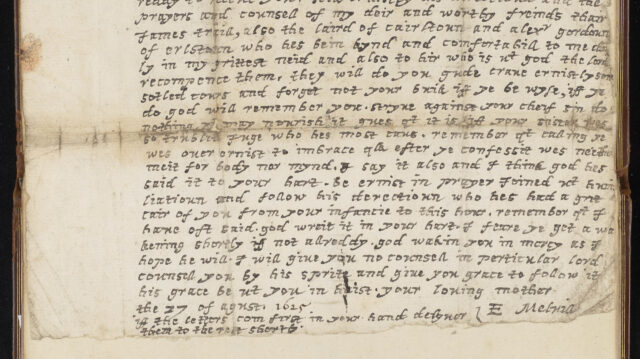 prayers and counsell of my deir and worthy freinds thair
James traill, also the laird of cairstoun and alexr gordoun
of erlstown who hes bein kynd and comfortabill to me
ly in my grittest neid and also to hir who is wt god the lord
recompence them, they will do you gude
and forget not your if ye be wyse, iff ye
do god will remember you. stryue against your cheif sin do
nothing nourish it
fuge who hes most caus. remember qt calling ye
wes ower ernist to imbrace qlk efter ye confessit wes
meit for body nor mynd. I say it also and I think god hes
said it to your hart. be ernist in prayer Joined wt
liatioun and follow his derectioun who hes had a gret
cair of you from your infancie to this hour. remember qt I
haue oft said. god wreit it in your hart. I feare ye get a wa
kening shortly if not allready. god wakin you in mercy as I
hope he will. I will giue you no counsell in perticular lord
counsell you by his sprite and giue you grace to follow it
his grace be wt you in haist. your louing mother
the 27 of agust 1625 E Melvill
if the letters com first in your hand
them to the rest shortly